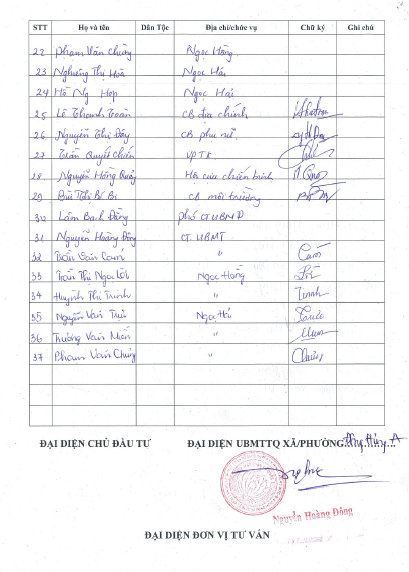 STT Họ và tên Dân Tộc Địa chỉ/chức vụ Chữ ký Ghi chú
22 Phạm Văn Chung Ngọc Hồng
23 Nghiêm Thị Hòa Ngọc Hải
24 Hồ Ng Hợp Ngọc Hải
25 Lê Thanh Toàn CB địa chính
26 Nguyễn Thị Đây CB phụ nữ
27 Trần Quyết Chiến VPTK
28 Nguyễn Hồng Quảy Hội cựu chiến binh
29 Bùi Thị Bé Bi CB môi trường
30 Lâm Bạch Đằng phó CT UBND
31 Nguyễn Hoàng Đông CT. UBMT
32 Trần Văn Cam "
33 Trần Thị Ngọc Lợi Ngọc Hồng
34 Huỳnh Thị Trinh " Trinh
35 Nguyễn Văn Ngọc Hải
36 Trương Văn Miến "
37 Phạm Văn Chung "
ĐẠI DIỆN CHỦ ĐẦU TƯ ĐẠI DIỆN UBMTTQ XÃ/PHƯỜNG A
Nguyễn Hoàng Đông
ĐẠI DIỆN ĐƠN VỊ TƯ VẤN